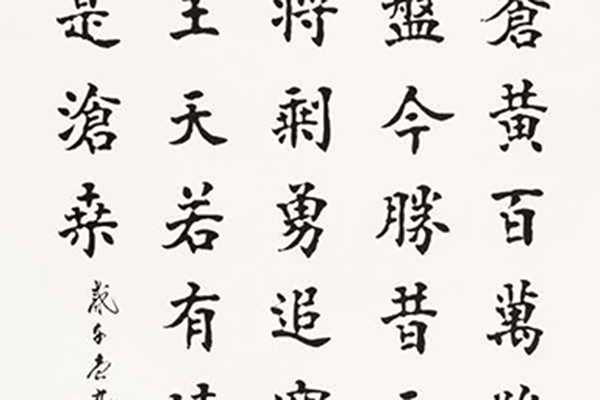 蒼黃百萬
盤今勝昔
將剩勇追
王天若有
是滄桑